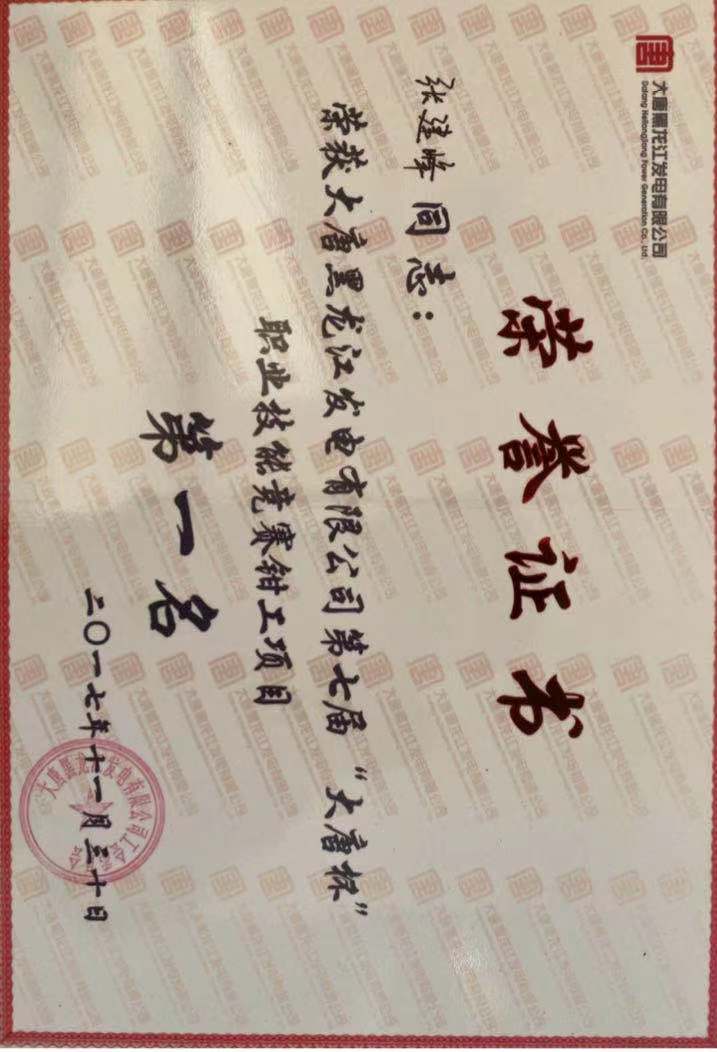 大唐黑龙江发电有限公司
Datang Heilongjiang Power Generation Co., Ltd.
荣誉证书
张建峰同志：
荣获大唐黑龙江发电有限公司第七届“大唐杯”
职业技能竞赛钳工项目
第一名
二〇一七年十一月三十日
大唐黑龙江发电有限公司工会